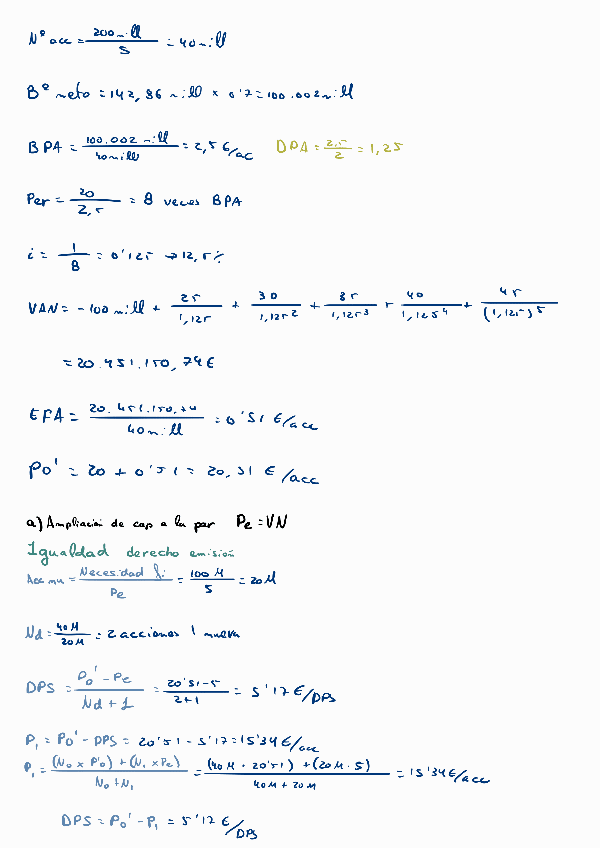 Nº acc = 200 mill / 5 = 40 mill
Bº neto = 142,86 mill x 0'7 = 100.002 mill
BPA = 100.002 mill / 40 mill = 2,5 €/ac DPA = 2,5 / 2 = 1,25
Per = 20 / 2,5 = 8 veces BPA
i = 1 / 8 = 0'125 → 12,5%
VAN = -100 mill + 25 / 1,125 + 30 / 1,125² + 35 / 1,125³ + 40 / 1,125⁴ + 45 / (1,125)⁵
= 20.451.150,74 €
EFA = 20.451.150,74 / 40 mill = 0'51 €/acc
Po' = 20 + 0'51 = 20,51 €/acc
a) Ampliación de cap a la par Pe = VN
Igualdad derecho emisión
Acc nu = Necesidad fi / Pe = 100 M / 5 = 20M
Nd = 40M / 20M = 2 acciones 1 nueva
DPS = Po' - Pe / Nd + 1 = 20'51 - 5 / 2 + 1 = 5'17 €/DPS
P₁ = Po' - DPS = 20'51 - 5'17 = 15'34 €/acc
P₁ = (No x P'o) + (N₁ x Pe) / No + N₁ = (40M · 20'51) + (20M · 5) / 40M + 20M = 15'34 €/acc
DPS = Po' - P₁ = 5'17 €/DPS